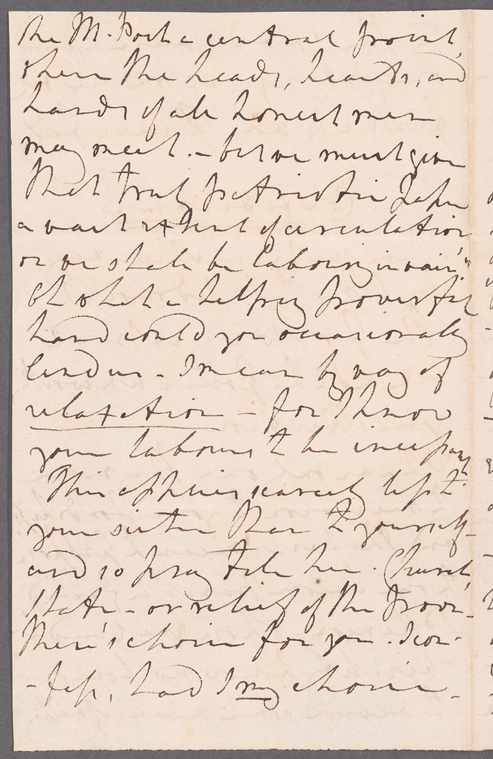 the M. Post a central point,
where the heads, hearts, and
hands of all honest men
may meet. - but we must give
that truly patriotic Paper
a vast extent of circulation
or we shall be labouring in vain"
Oh what a helping powerful
hand could you occasionally
lend us - I mean by way of
relaxation - for I know
your labours to be incessant
This applies scarcely less to
your sister than to yourself -
and so pray tell her. Church,
State - or relief of the Poor.
there's choice for you. I con-
-fess, had I my choice -